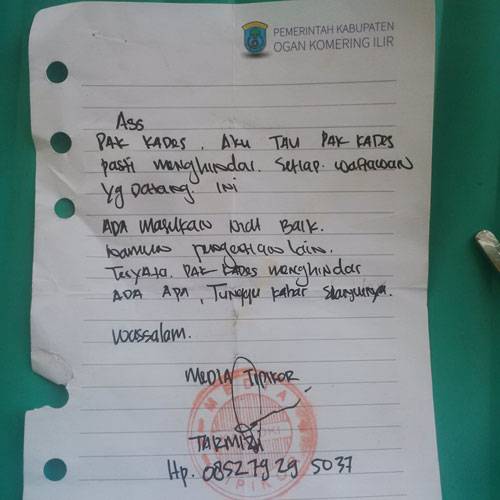 PEMERINTAH KABUPATEN
OGAN KOMERING ILIR
Ass
PAK KADES, AKU TAU PAK KADES
pasti menghindar. Setiap wartawan
yg Datang. INI
ADA MASUKAN niat BAIK.
namun pengertian lain.
Ternyata PAK KADES menghindar
ADA APA, Tunggu kabar Slanjutnya.
wassalam.
MEDIA TIPIKOR
MEDIA
TIPIKOR
TARMIZI
Hp. 0852 79 29 5037